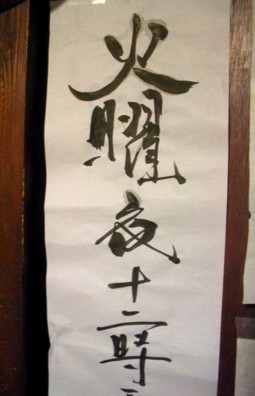 火曜夜十二時